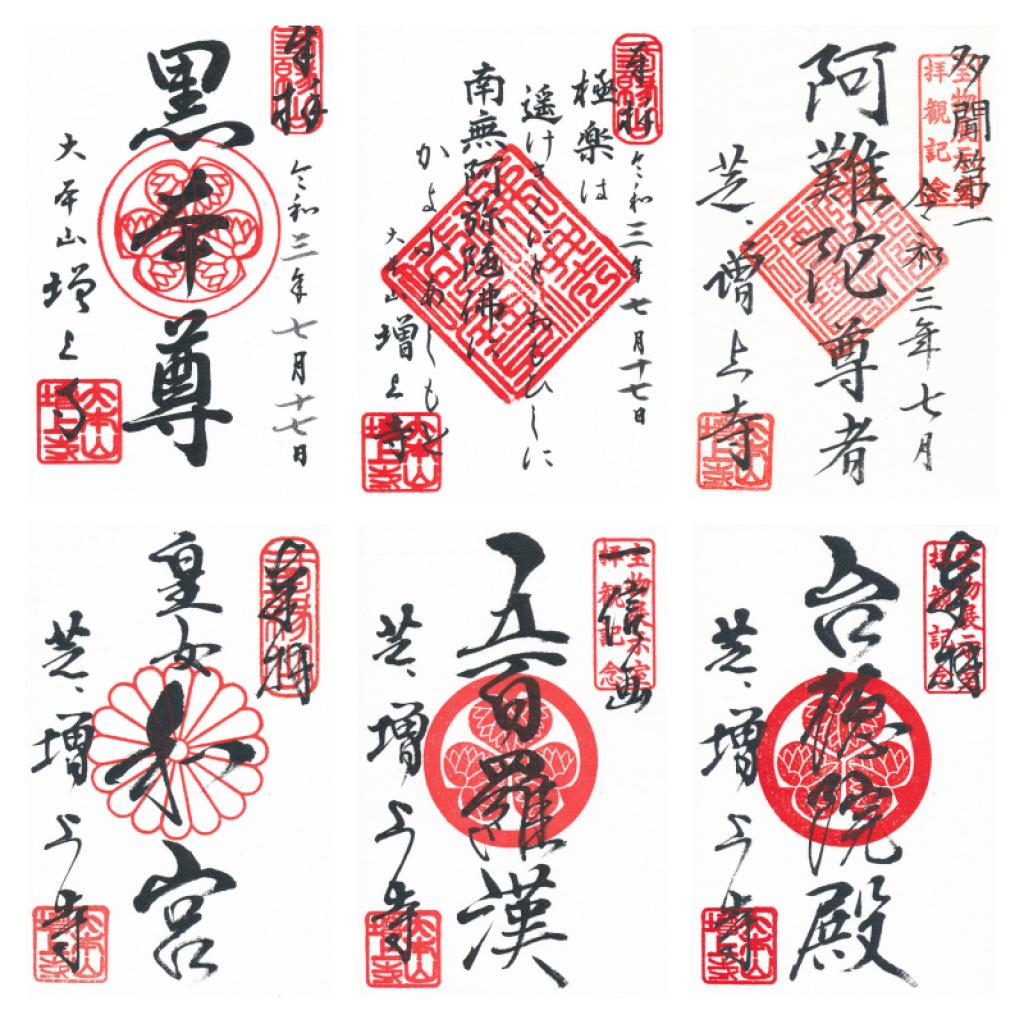 奉拝
令和三年七月十七日
黒本尊
大本山
増上寺
奉拝
令和三年七月十七日
極楽は
遥けきほどときおもひしに
南無阿弥陀佛に
大本山
増上寺
多聞第一
宝物展示室
拝観記念
令和三年七月
阿難陀尊者
芝、増上寺
奉拝
皇女
和
宮
芝、増上寺
一信画
宝物展示室
拝観記念
五百羅漢
芝、増上寺
奉拝
宝物展示室
拝観記念
台徳院殿
芝、増上寺